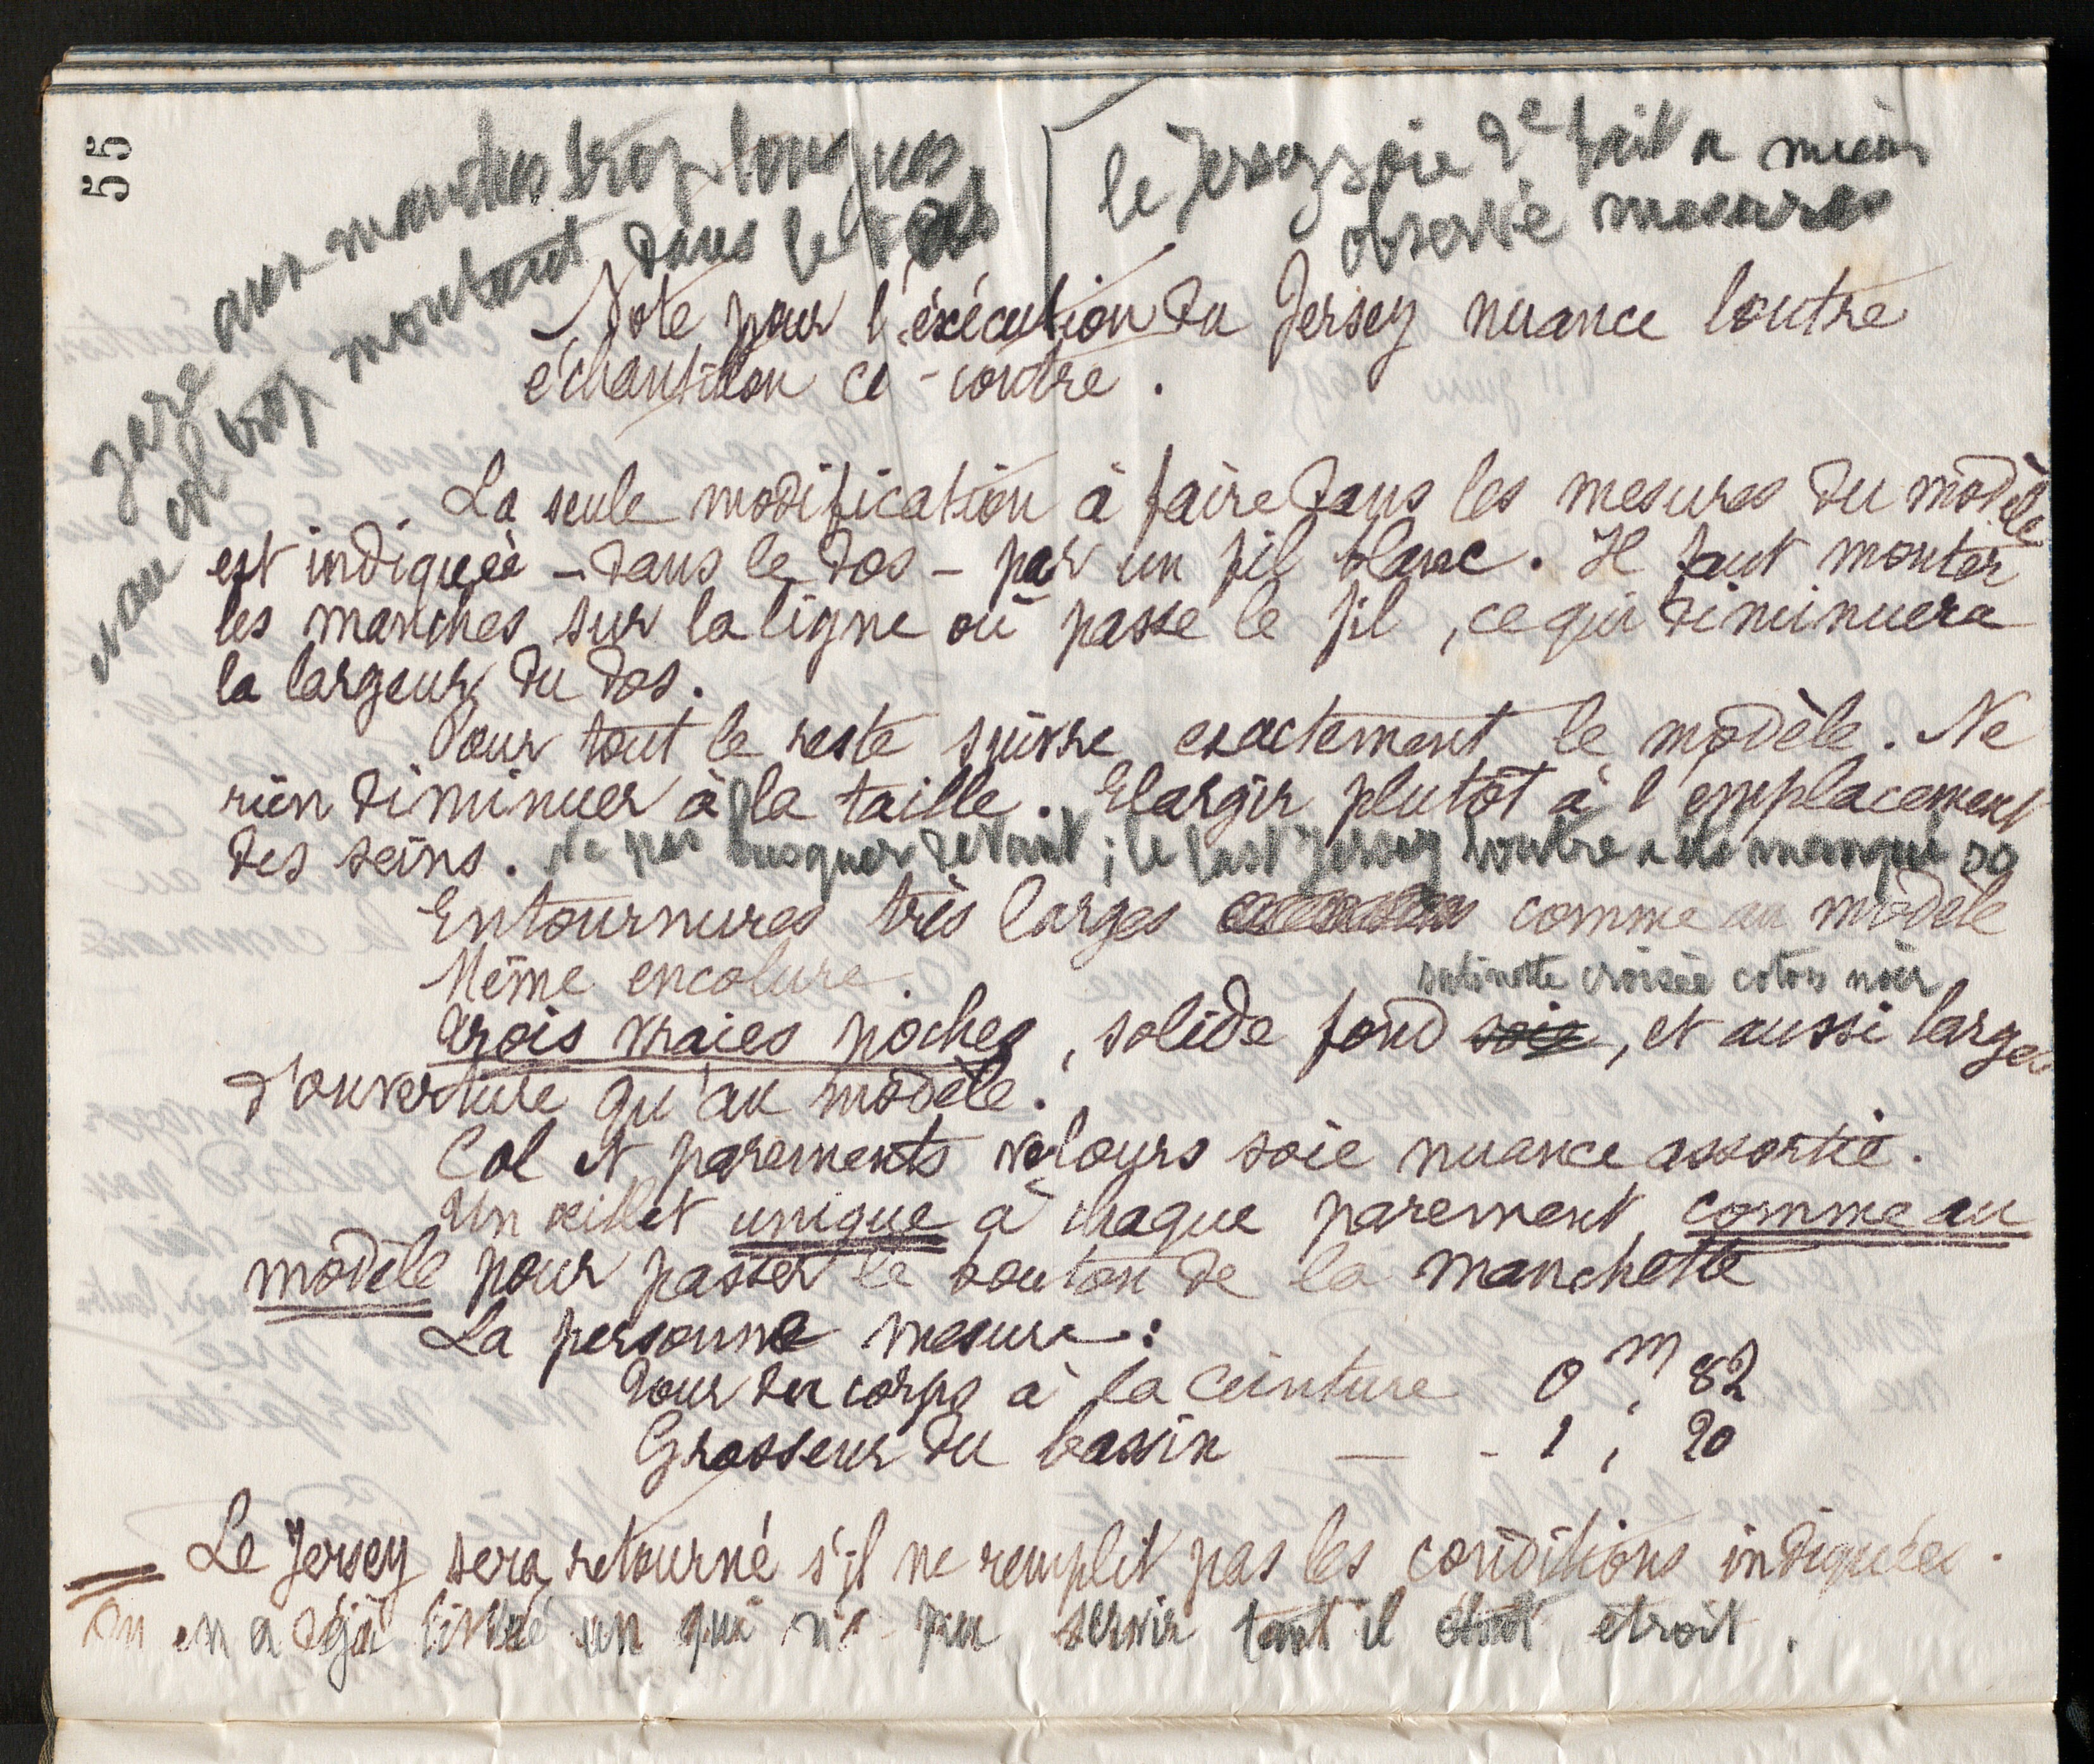 55
gare aux manches trop longues
et au col trop montant dans le dos
le Jersey soie 2e fait a mieux
observé mesures
Note pour l'éxécution du Jersey nuance loutre
échantillon ci-contre.
La seule modification à faire dans les mesures du modèle
est indiquée - dans le dos - par un fil blanc. Il faut monter
les manches sur la ligne où passe le fil, ce qui diminuera
la largeur du dos.
Pour tout le reste suivre exactement le modèle. Ne
rien diminuer à la taille. Elargir plutôt à l'emplacement
des seins. Ne pas busquer devant; le last Jersey loutre a été manqué
Entournures très larges comme au modèle
Même encolure.
satinette croisée coton noir
Trois vraies poches, solide fond soie, et aussi larges
d'ouverture qu'au modèle.
Col et parements velours soie nuance assortie.
Un œillet unique à chaque parement, comme au
modèle pour passer le bouton de la manchette
La personne mesure:
Tour du corps à la ceinture 0 m, 82
Grosseur du bassin — - 1, 20
Le Jersey sera retourné s'il ne remplit pas les conditions indiquées.
On en a déjà livré un qui n'a pu servir tant il était étroit.